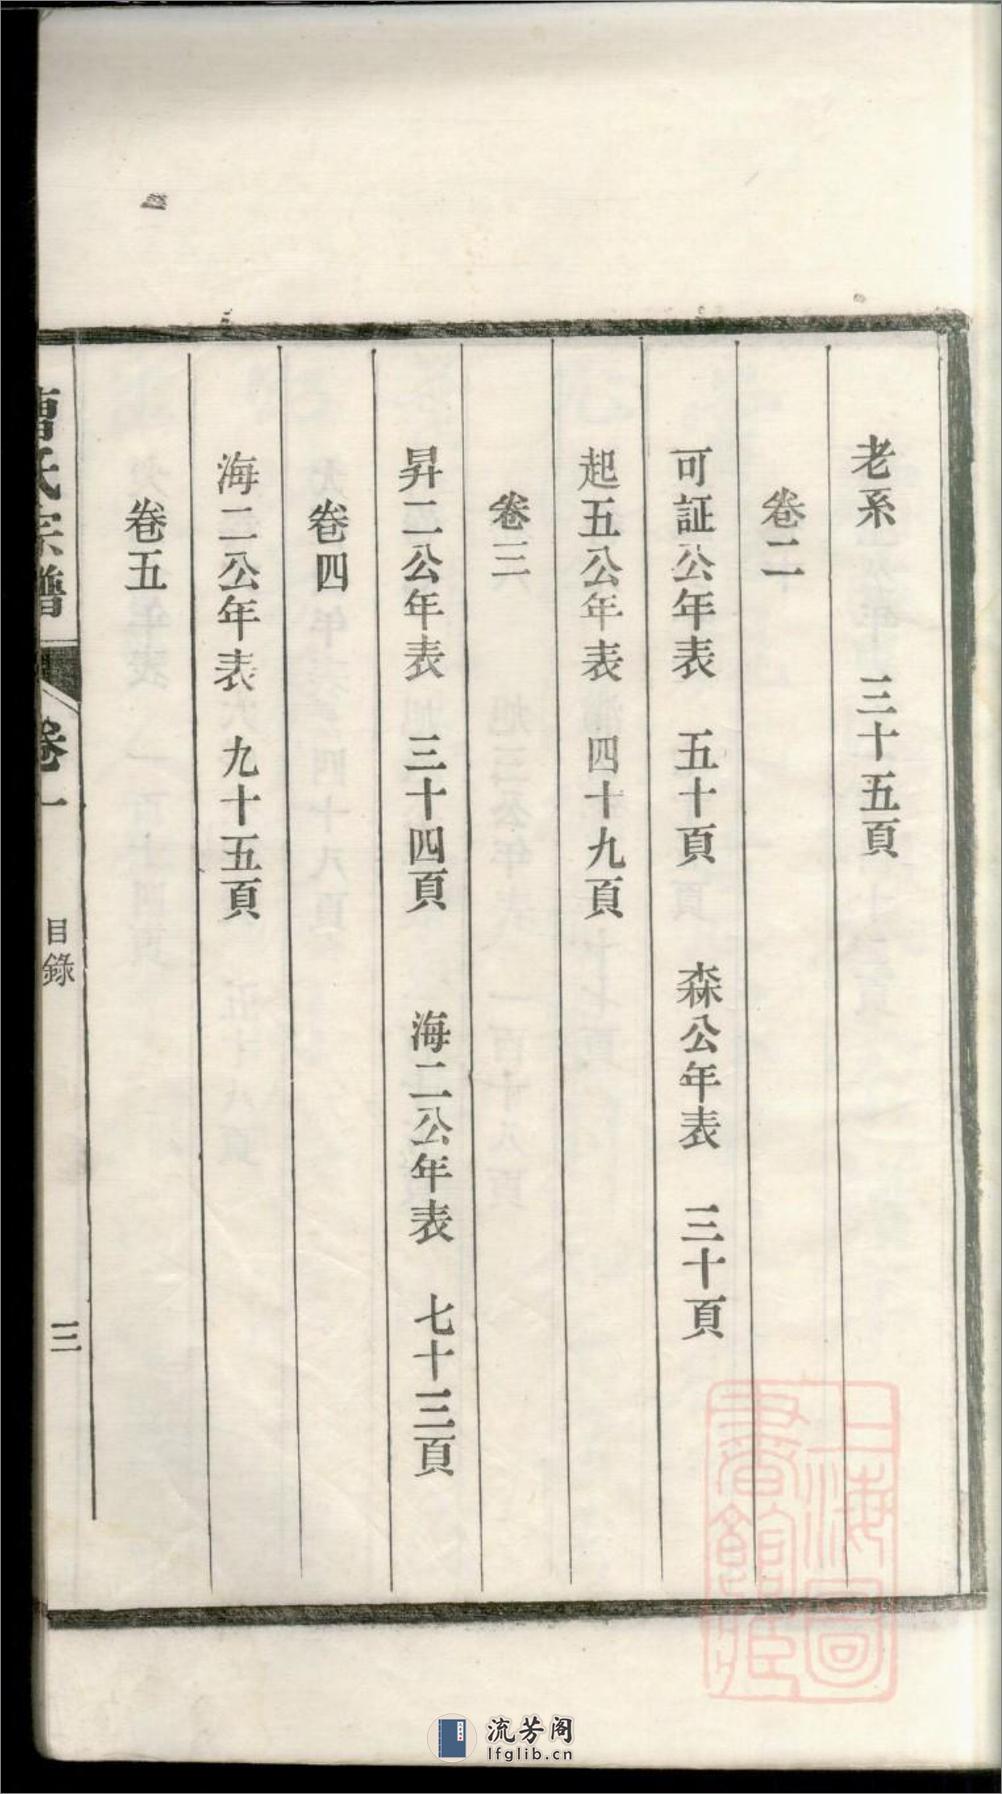 老系 三十五頁
卷二
可証公年表 五十頁 森公年表 三十頁
起五公年表 四十九頁
卷三
昇二公年表 三十四頁 海二公年表 七十三頁
卷四
海二公年表 九十五頁
卷五
曹氏宗譜 卷一 目錄 三
上海圖書館藏
流芳阁
lfglib.cn